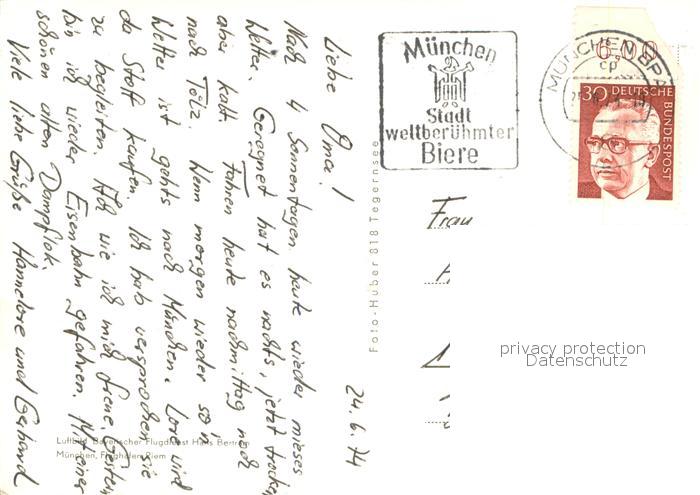 München
Stadt
weltberühmter
Biere
MÜNCHEN BPA
cp
6,00
30 DEUTSCHE
BUNDESPOST
24.6.74
Liebe Oma!
Nach 4 Sonnentagen heute wieder mieses
Wetter. Geregnet hat es nachts, jetzt trocken
aber kalt. Fahren heute nachmittag noch
nach Tölz. Wenn morgen wieder so'n
Wetter ist gehts nach München. Lore wird
da Stoff kaufen. Ich hab versprochen sie
zu begleiten. wie ich mich freue. Gestern
bin ich wieder Eisenbahn gefahren. Mit einer
schönen alten Dampflok.
Viele liebe Grüße Hannelore und Gerhard
Foto-Huber 818 Tegernsee
Frau
privacy protection
Datenschutz
Luftbild Bayerischer Flugdienst Hans Bertram
München, Flughafen Riem